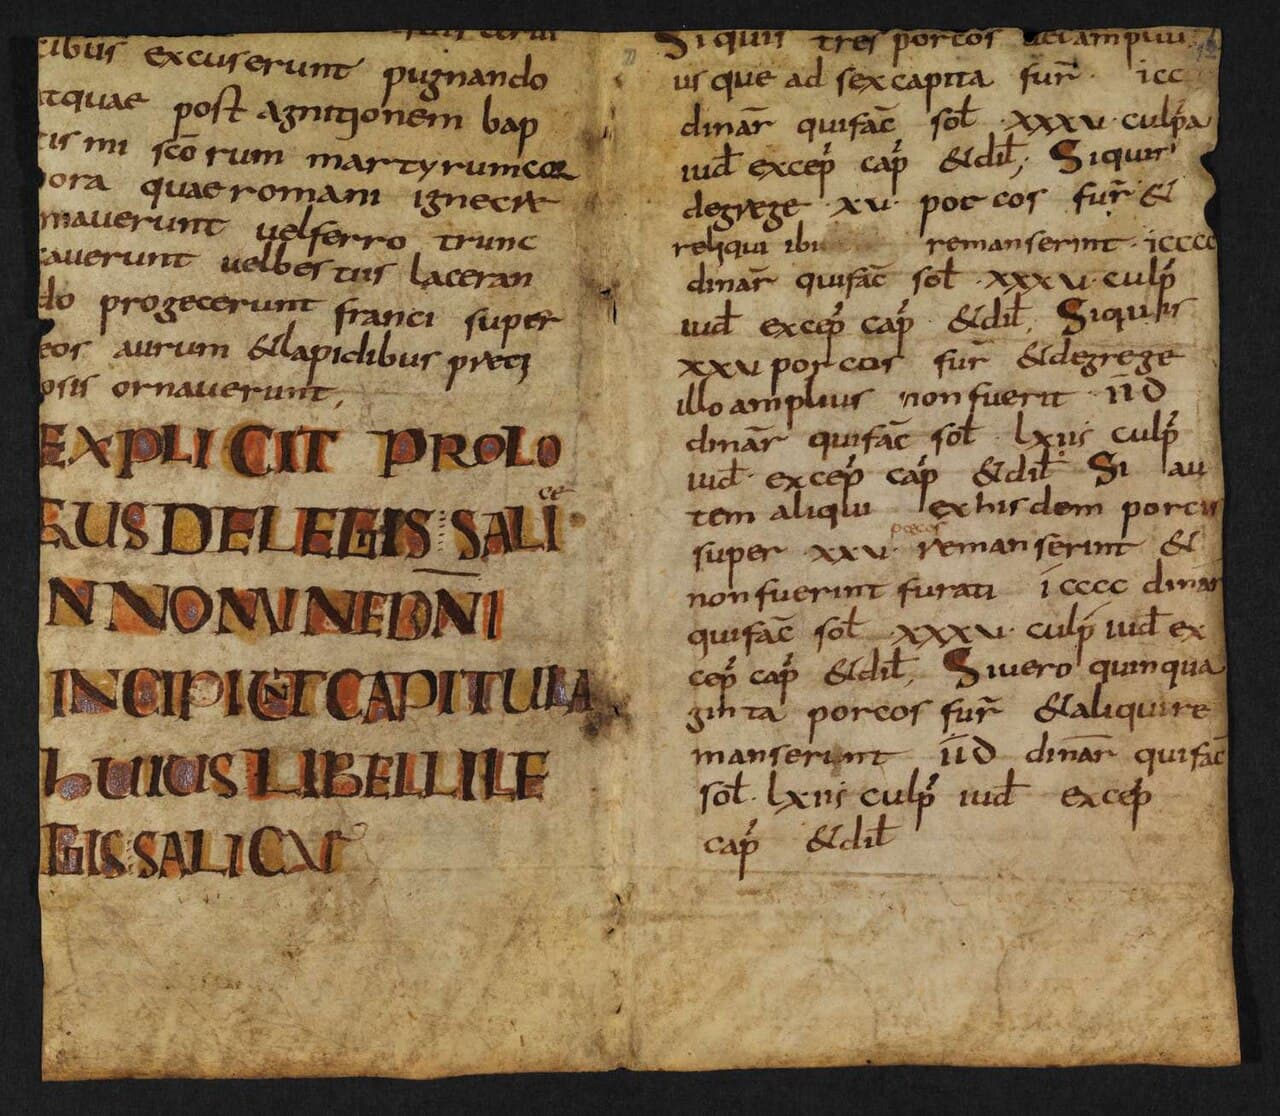 cibus excuserunt pugnando
atquae post agnitionem bap
tis mi sc̄orum martyrum cor
pora quae romani igne cre
maverunt vel ferro trunc
caverunt vel bestiis laceran
do progecerunt franci super
eos aurum & lapidibus preti
osis ornaverunt,
EXPLICIT PROLO
GUS DE LEGIS SALI
ce
N NOMINE DNI
INCIPIUNT CAPITULA
HUIUS LIBELLI LE
GIS SALICAE
Si quis tres porcos vel ampliu
us que ad sex capita fur̄ · icc
dinar̄ qui fac̄ sol̄ · xxxv · culp̄a
iud̄ excep̄ cap̄ & dil̄; Si quis
degrege · xv · porcos fur̄ &
reliqui ibi remanserint · icccc
dinar̄ qui fac̄ sol̄ · xxxv · culp̄
iud̄ excep̄ cap̄ · & dil̄; Si quis
xxv porcos fur̄ & degrege
illo amplius non fuerit · IID
dinar̄ qui fac̄ sol̄ · lxiis culp̄
iud̄ · excep̄ cap̄ & dil̄ Si au
tem aliqui ex hisdem porcis
porcos
super xxv · remanserint &
non fuerint furati icccc dinar
qui fac̄ sol̄ · xxxv · culp̄ iud̄ ex
cep̄ cap̄ & dil̄; Si vero quinqua
ginta porcos fur̄ & aliqui re
manserint IID dinar̄ qui fac̄
sol̄ · lxiis culp̄ iud̄ excep̄
cap̄ & dil̄